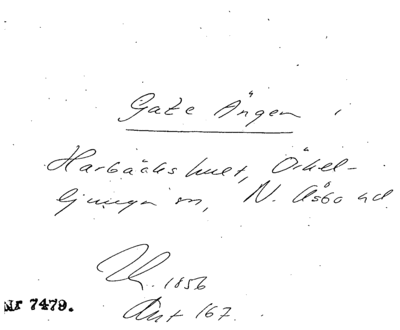 Gate Ängen
Harbäckshult, Örkel-
ljunga sn, N. Åsbo hd
1856
Ant 167.
Nr 7479.